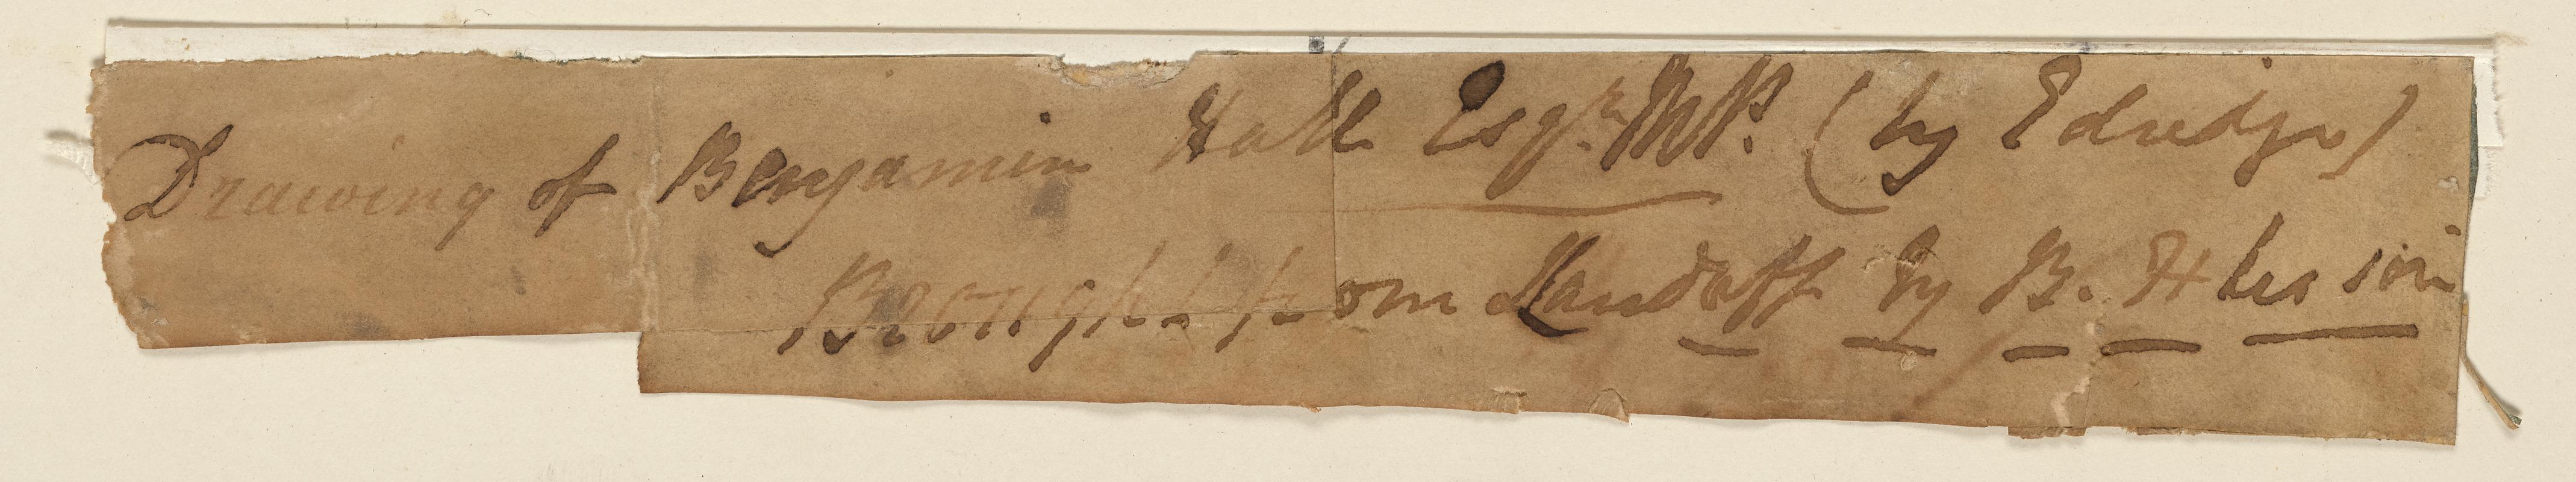 Drawing of Benjamin Hall Esqr. MP. (by Edridge)
Brought from Llandaff by B. H his son